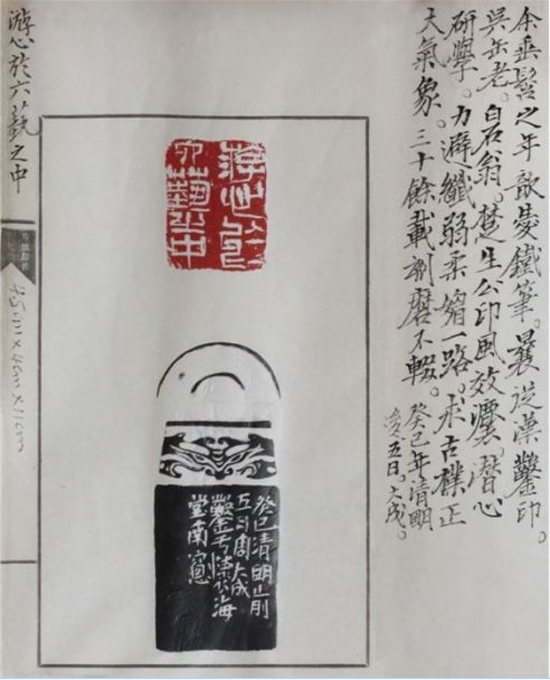 余垂髫之年歆愛鐵筆。曩從漢鑿印。
吳缶老。白石翁。楚生公印風效灋。潛心
研學。力避纖弱柔媚一路。求古樸正
大氣象。三十餘載磨不輟。癸巳年清明
五日。大成。
游心於
六藝之中
癸巳清明前
五日周大成
鑿于海
堂南窗
游心於六蓺之中
4cm×11cm